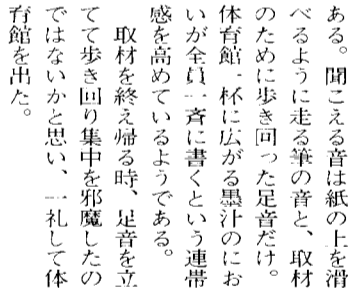 ある。聞こえる音は紙の上を滑
べるように走る筆の音と、取材
のために歩き回った足音だけ。
体育館一杯に広がる墨汁のにお
いが全員一斉に書くという連帯
感を高めているようである。
取材を終え帰る時、足音を立
てて歩き回り集中を邪魔したの
ではないかと思い、一礼して体
育館を出た。